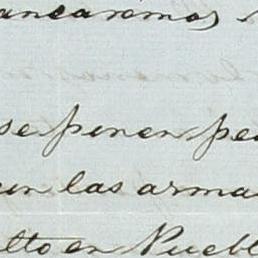 ancaremos
se ponen pe
un las arma
lto en Puebl